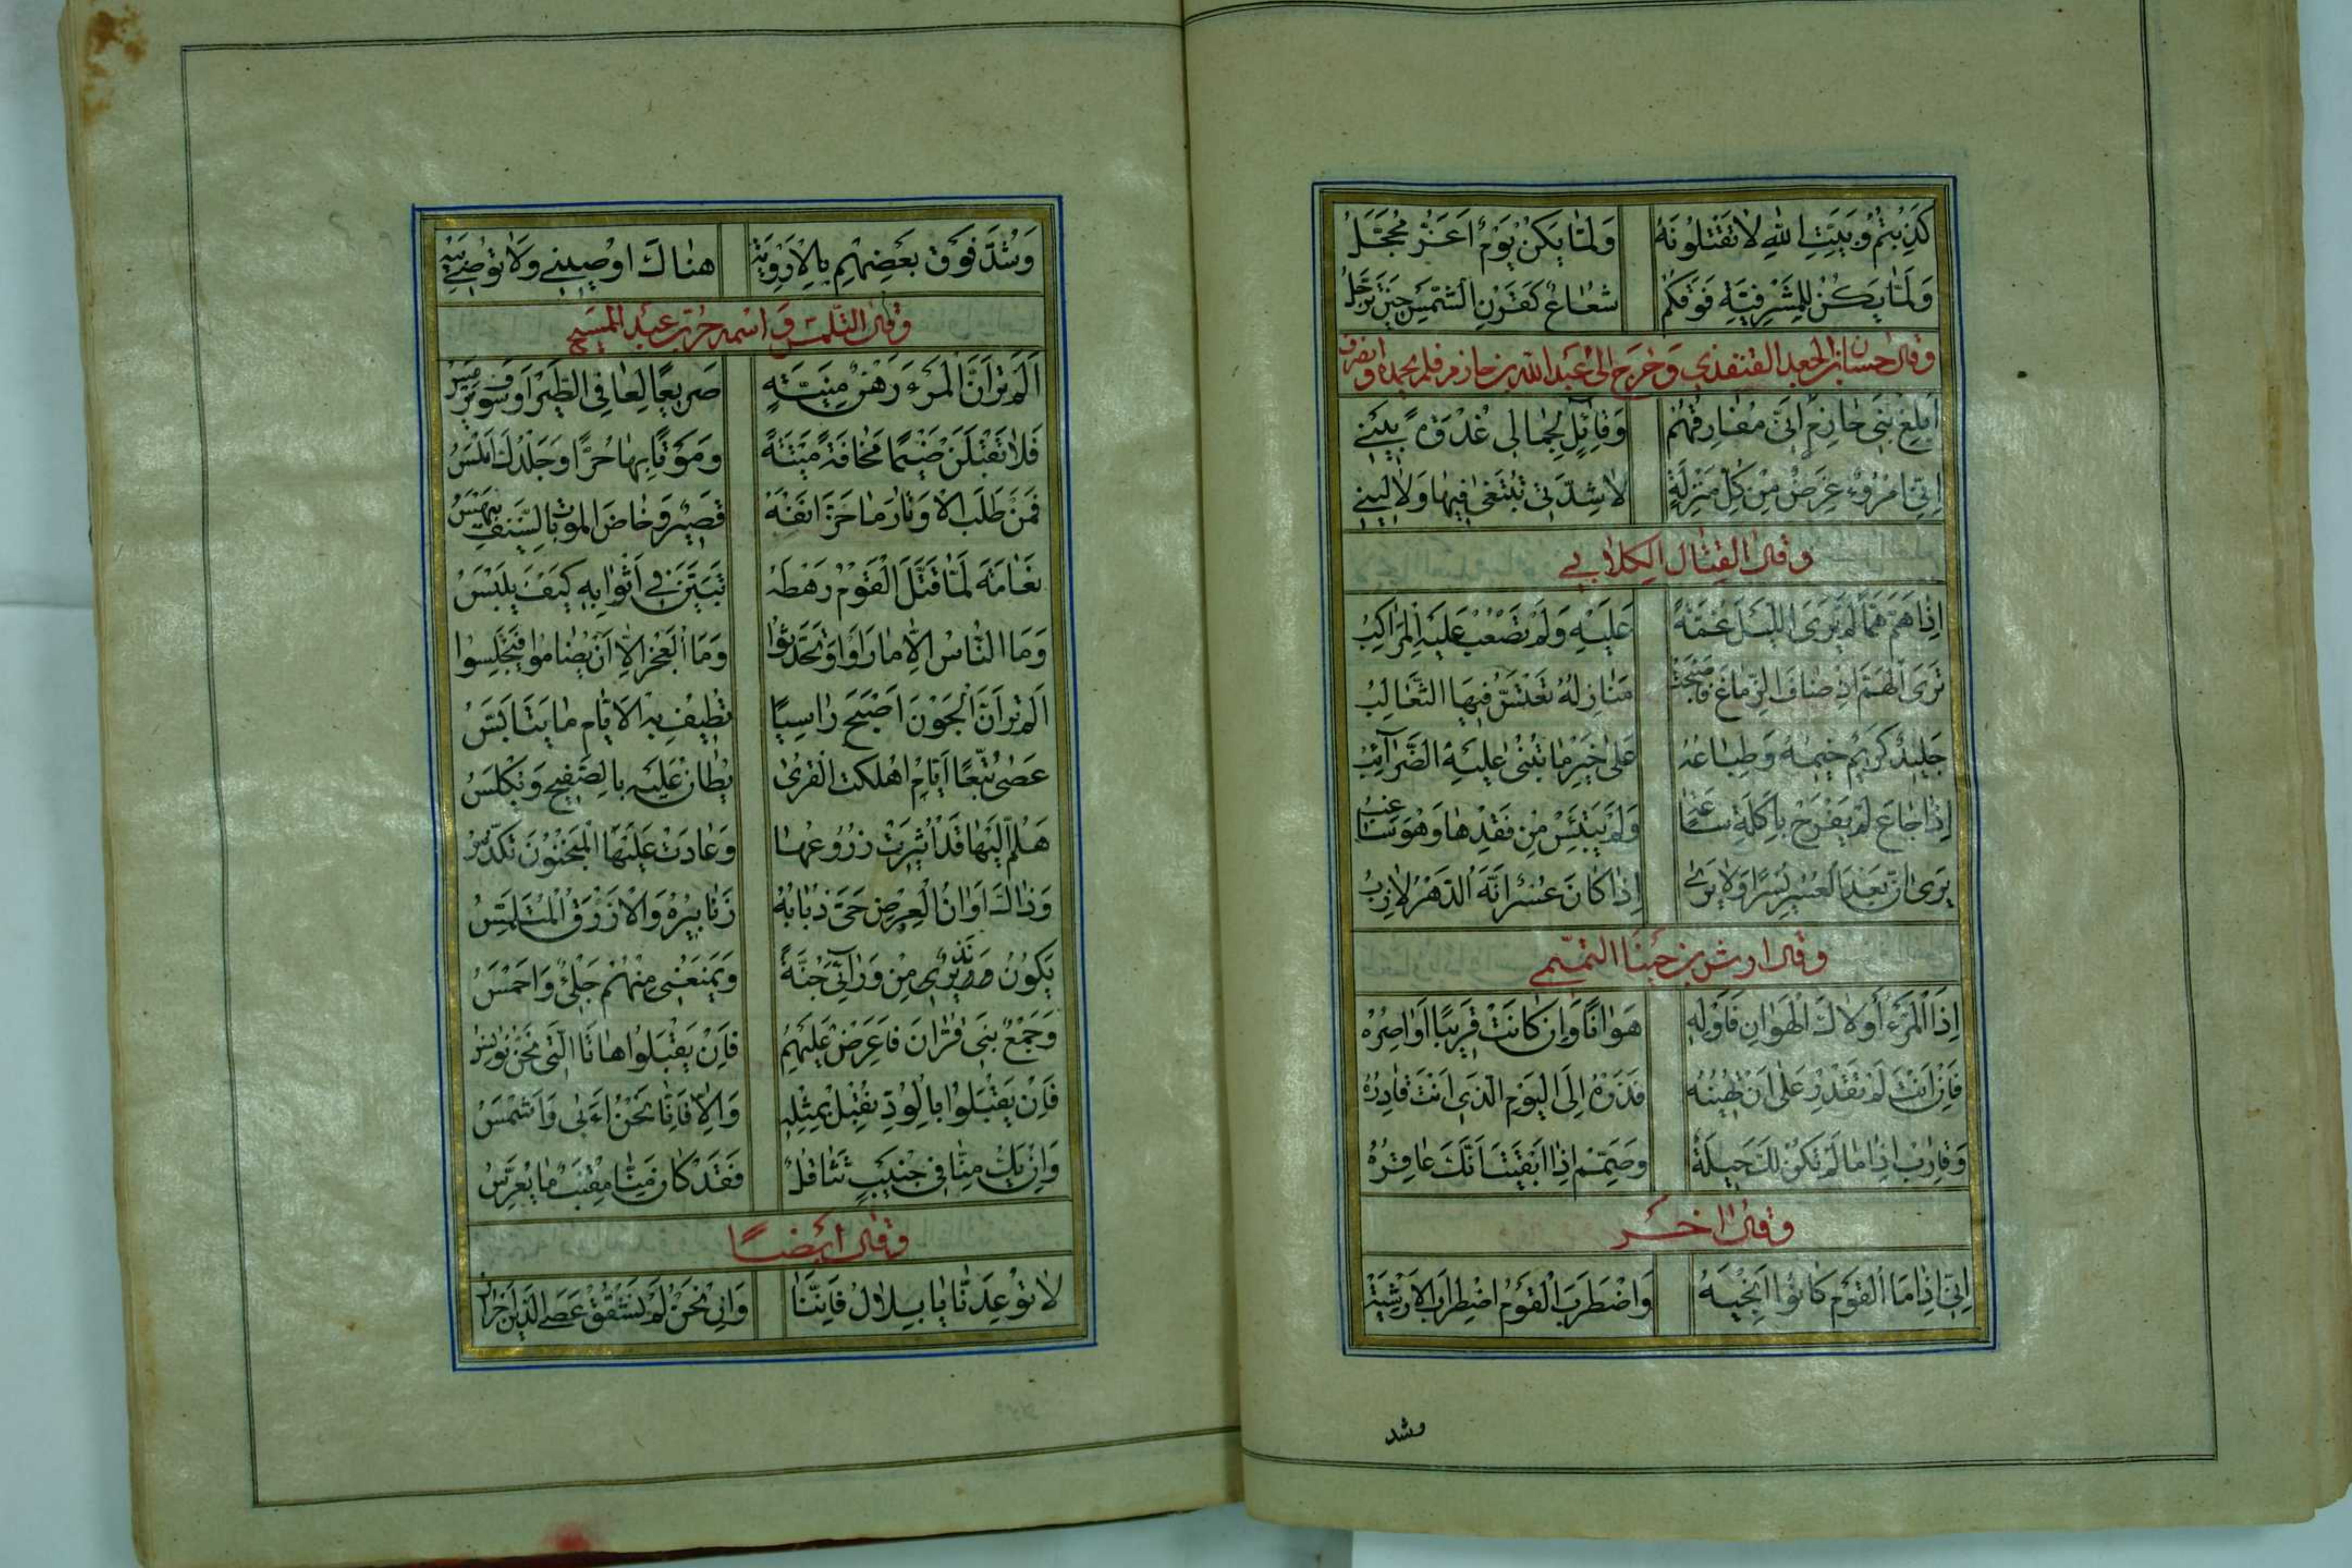 كَذِبْتُمْ وَبَيْتِ اللّٰهِ لَا تَقْتُلُونَهُ وَلَمَّا يَكُنْ يَوْمٌ اَغَرُّ مُحَجَّلُ
وَلَمَّا يَكُنْ لِلْمَشْرَفِيَّةِ فَوْقَكُمْ شُعَاعٌ كَقَرْنِ الشَّمْسِ حِينَ تَرَجَّلُ
وقال حسان بن الجعد القنفذي وخرج الى عبد الله بن خازم فلم يحمده وانصرف
اَبْلِغْ بَنِي خَازِمٍ اَنِّي مُفَارِقُهُمْ وَقَائِلٌ لِجِمَالِي غُدْوَةً بِينِي
اِنِّي امْرُؤٌ غَرِضٌ مِنْ كُلِّ مَنْزِلَةٍ لَا شِدَّتِي تُبْتَغَى فِيهَا وَلَا لِينِي
وقال القتال الكلابي
اِذَا هَمَّ هَمًّا لَمْ يَرَ اللَّيْلَ غُمَّةً عَلَيْهِ وَلَمْ تَصْعُبْ عَلَيْهِ الْمَرَاكِبُ
تَرَى الْهَمَّ اِذْ ضَافَ الزِّمَاعَ فَاَصْبَحَتْ مَنَازِلُهُ تَعْتَسُّ فِيهَا الثَّعَالِبُ
جَلِيدٌ كَرِيمٌ خِيمُهُ وَطِبَاعُهُ عَلَى خَيْرِ مَا تُبْنَى عَلَيْهِ الضَّرَائِبُ
اِذَا جَاعَ لَمْ يَفْرَحْ بِاَكْلَةِ سَاعَةٍ وَلَمْ يَبْتَئِسْ مِنْ فَقْدِهَا وَهُوَ سَاغِبُ
يَرَى اَنَّ بَعْدَ الْعُسْرِ يُسْرًا وَلَا يَرَى اِذَا كَانَ عُسْرٌ اَنَّهُ الدَّهْرَ لَازِبُ
وقال اوس بن حبنا التميمي
اِذَا الْمَرْءُ اَوْلَاكَ الْهَوَانَ فَاَوْلِهِ هَوَانًا وَاِنْ كَانَتْ قَرِيبًا اَوَاصِرُهْ
فَاِنْ اَنْتَ لَمْ تَقْدِرْ عَلَى اَنْ تُهِينَهُ فَذَرْهُ اِلَى الْيَوْمِ الَّذِي اَنْتَ قَادِرُهْ
وَقَارِبْ اِذَا مَا لَمْ تَكُنْ لَكَ حِيلَةٌ وَصَمِّمْ اِذَا اَيْقَنْتَ اَنَّكَ عَاقِرُهْ
وقال اخر
اِنِّي اِذَا مَا الْقَوْمُ كَانُوا اَنْجِيَهْ وَاضْطَرَبَ الْقَوْمُ اضْطِرَابَ الْاَرْشِيَهْ
وشد
وَشُدَّ فَوْقَ بَعْضِهِمْ بِالْاَرْوِيَهْ هُنَاكَ اَوْصِينِي وَلَا تُوصِي بِيَهْ
وقال المتلمس واسمه جرير بن عبد المسيح
اَلَمْ تَرَ اَنَّ الْمَرْءَ رَهْنُ مَنِيَّةٍ صَرِيعًا لِعَافِي الطَّيْرِ اَوْ سَوْفَ يُرْمَسُ
فَلَا تَقْبَلَنْ ضَيْمًا مَخَافَةَ مِيتَةٍ وَمُوتًا بِهَا حُرًّا وَجِلْدُكَ اَمْلَسُ
فَمِنْ طَلَبِ الْاَوْتَارِ مَا حَزَّ اَنْفَهُ قَصِيرٌ وَخَاضَ الْمَوْتَ بِالسَّيْفِ بَيْهَسُ
نَعَامَةُ لَمَّا قَتَّلَ الْقَوْمُ رَهْطَهُ تَبَيَّنَ فِي اَثْوَابِهِ كَيْفَ يَلْبَسُ
وَمَا النَّاسُ اِلَّا مَا رَاَوْا وَتَحَدَّثُوا وَمَا الْعَجْزُ اِلَّا اَنْ يُضَامُوا فَيَجْلِسُوا
اَلَمْ تَرَ اَنَّ الْجَوْنَ اَصْبَحَ رَاسِيًا تُطِيفُ بِهِ الْاَيَّامُ مَا يَتَاَيَّسُ
عَصَى تُبَّعًا اَيَّامَ اُهْلِكَتِ الْقُرَى يُطَانُ عَلَيْهِ بِالصَّفِيحِ وَيُكْلَسُ
هَلُمَّ اِلَيْهَا قَدْ اُثِيرَتْ زُرُوعُهَا وَعَادَتْ عَلَيْهَا الْمَنْجَنُونُ تَكَدَّسُ
وَذَاكَ اَوَانُ الْعِرْضِ حَيَّ ذُبَابُهُ زَنَابِيرُهُ وَالْاَزْرَقُ الْمُتَلَمِّسُ
يَكُونُ نَذِيرٌ مِنْ وَرَائِي جُنَّةً وَيَمْنَعُنِي مِنْهُمْ جُلَيٌّ وَاَحْمَسُ
وَجَمْعُ بَنِي قُرَّانَ فَاعْرِضْ عَلَيْهِمُ فَاِنْ يَقْبَلُوا هَاتَا الَّتِي نَحْنُ نُوبَسُ
فَاِنْ يَقْبَلُوا بِالْوُدِّ نُقْبِلْ بِمِثْلِهِ وَاِلَّا فَاِنَّا نَحْنُ آبَى وَاَشْمَسُ
وَاِنْ يَكُ مِنَّا فِي حُبَيْبٍ تَثَاقُلٌ فَقَدْ كَانَ مِنَّا مِقْنَبٌ مَا يُعَرِّسُ
وقال ايضًا
لَا تُوعِدَنَّا يَا بِلَالُ فَاِنَّنَا وَاِنْ نَحْنُ لَمْ نَشْقُقْ عَصَا الدِّينِ اَحْرَارُ